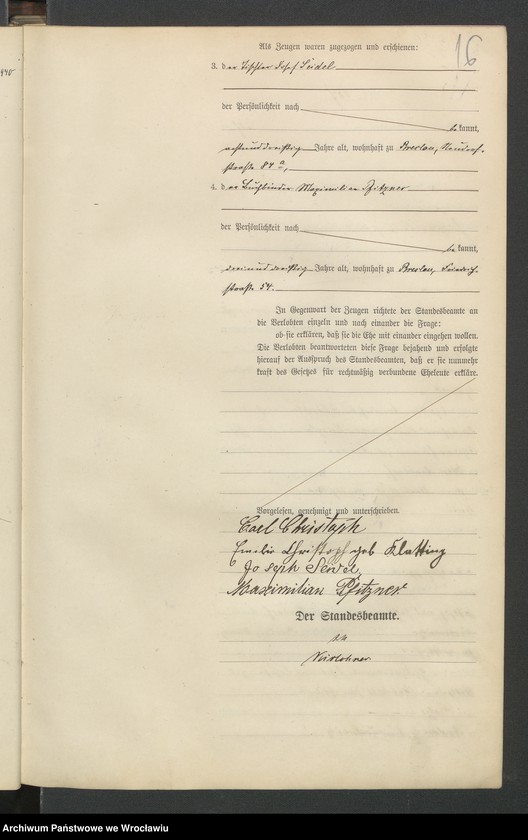 16
Als Zeugen waren zugezogen und erschienen:
3. der Tischler Josef Seidel
der Persönlichkeit nach
bekannt,
achtunddreißig Jahre alt, wohnhaft zu Breslau, Neudorf-
straße 84 a,
4. der Buchbinder Maximilian Pfitzner
der Persönlichkeit nach
bekannt,
dreiunddreißig Jahre alt, wohnhaft zu Breslau, Friedrich-
straße 54.
In Gegenwart der Zeugen richtete der Standesbeamte an
die Verlobten einzeln und nach einander die Frage:
ob sie erklären, daß sie die Ehe mit einander eingehen wollen.
Die Verlobten beantworteten diese Frage bejahend und erfolgte
hierauf der Ausspruch des Standesbeamten, daß er sie nunmehr
kraft des Gesetzes für rechtmäßig verbundene Eheleute erkläre.
Vorgelesen, genehmigt und unterschrieben.
Carl Christoph
Emilie Christoph geb Klatting
Joseph Seidel
Maximilian Pfitzner
Der Standesbeamte.
Archiwum Państwowe we Wrocławiu